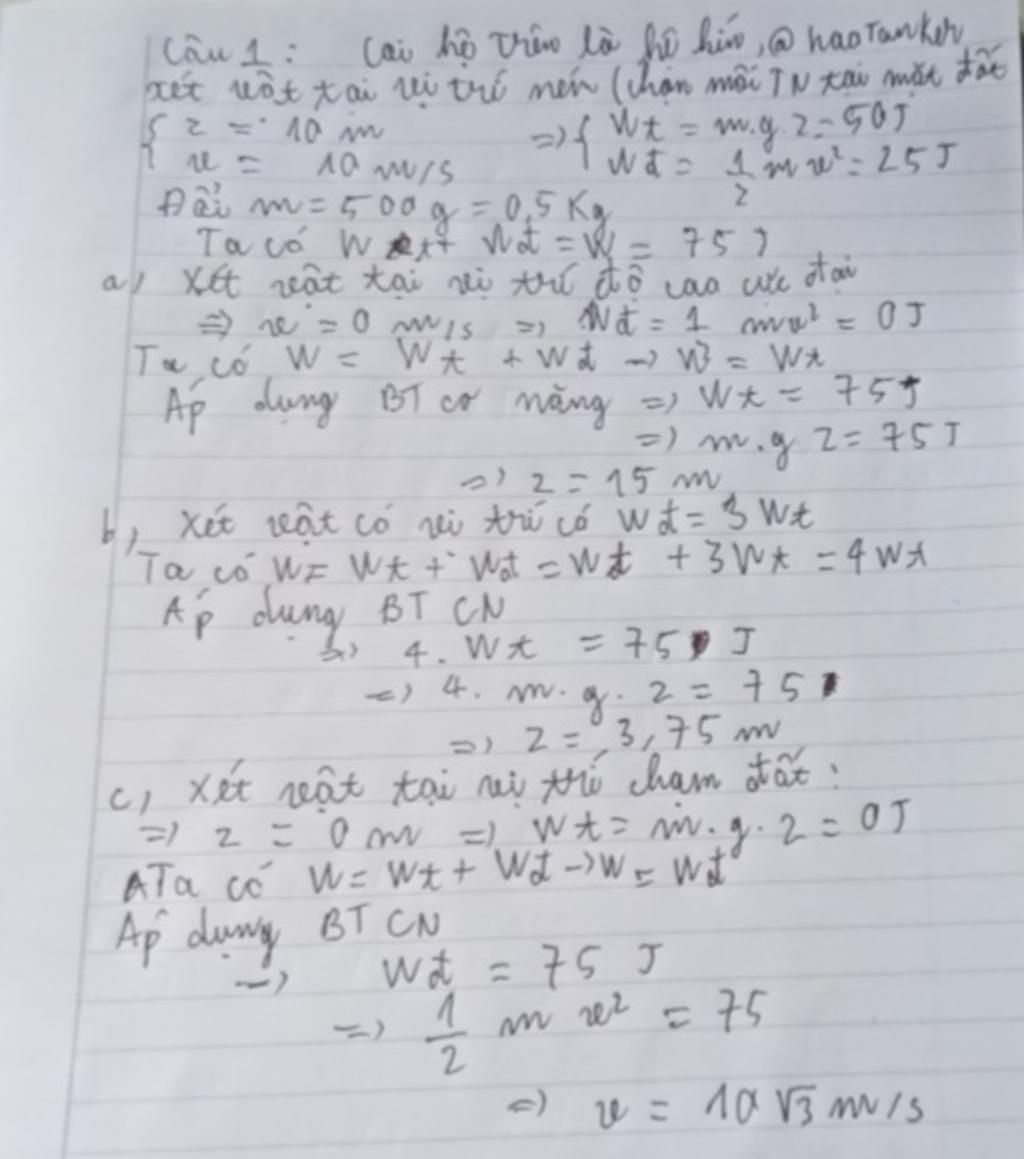 Câu 1: Coi hệ trên là hệ kín, @haoTanker
xét vật tại vị trí ném (chọn mốc TN tại mặt đất
{ z = 10 m => { Wt = m.g.z = 50 J
{ v = 10 m/s Wđ = 1/2 mv² = 25 J
Đổi m = 500 g = 0,5 Kg
Ta có Wt + Wđ = W = 75 J
a, Xét vật tại vị trí độ cao cực đại
=> v = 0 m/s => Wđ = 1 mv² = 0 J
Ta có W = Wt + Wđ -> W = Wt
Áp dụng BT cơ năng => Wt = 75 J
=> m.g.z = 75 J
=> z = 15 m
b, Xét vật có vị trí có Wđ = 3 Wt
Ta có W = Wt + Wđ = Wt + 3Wt = 4Wt
Áp dụng BT CN
=> 4. Wt = 75 J
=> 4. m. g. z = 75
=> z = 3,75 m
c, Xét vật tại vị trí chạm đất:
=> z = 0 m => Wt = m. g. z = 0 J
Ta có W = Wt + Wđ -> W = Wđ
Áp dụng BT CN
-> Wđ = 75 J
=> 1/2 m v² = 75
=> v = 10 √3 m/s